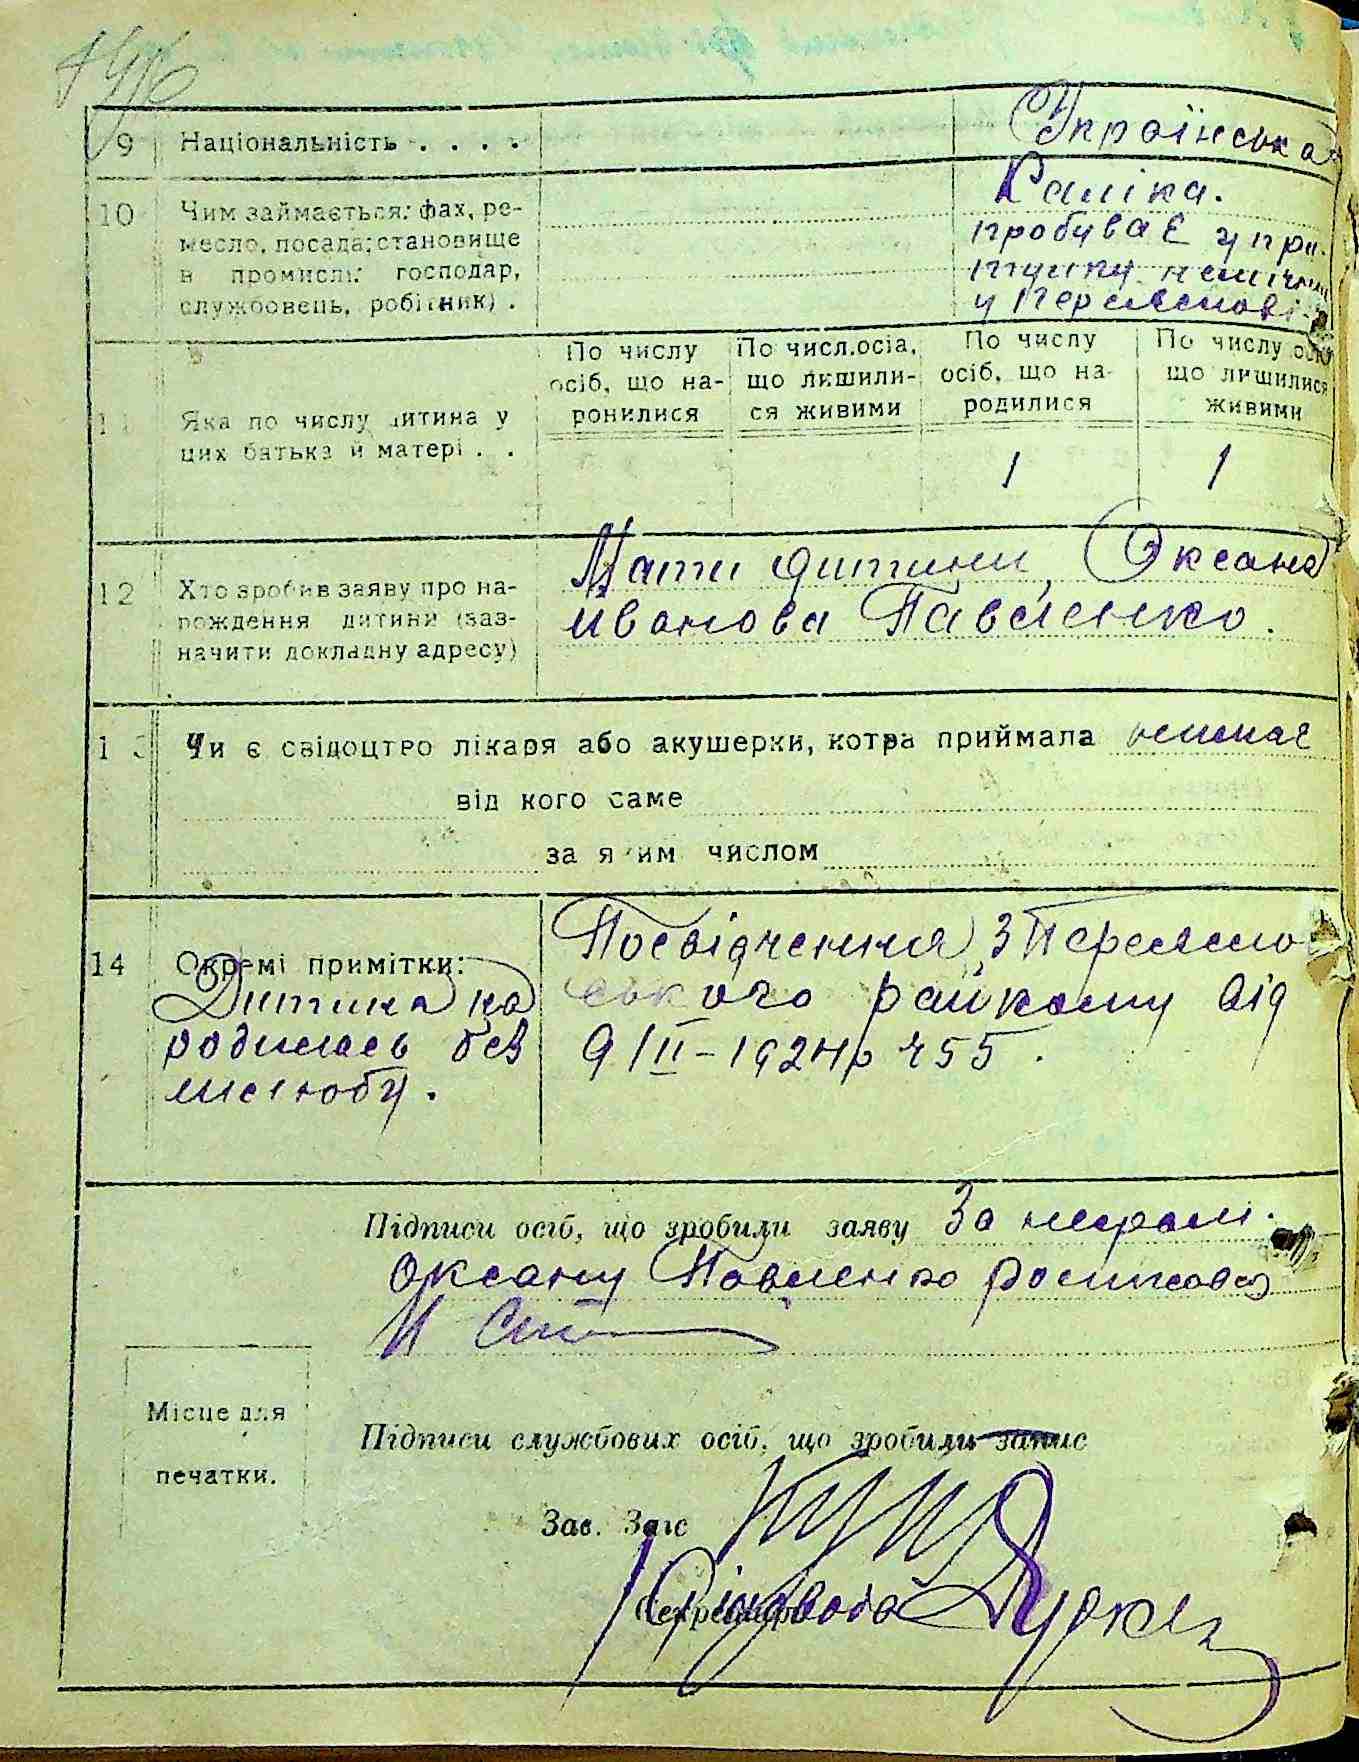 9 Національність . . . . Українська
10 Чим займається: фах, ре- Каліка.
месло, посада; становище пробуває у при-
в промислі: господар, тулку немічних
службовець, робітник) . у Переяславі
По числу По числ.осіа, По числу По числу осіб
осіб, що на- що лишили- осіб, що на- що лишилися
ронилися ся живими родилися живими
11 Яка по числу дитина у
цих батька й матері . . 1 1
12 Хто зробив заяву про на- Мати дитини, Оксана
рождення дитини (заз- Иванова Павленко.
начити докладну адресу)
13 Чи є свідоцтво лікаря або акушерки, котра приймала немає
від кого саме
за яким числом
14 Окремі примітки: Посвідчення з Переясло-
Дитина на ського райкому від
родилась без 9/II-1924р 455.
шлюбу.
Підписи осіб, що зробили заяву За неграм.
Оксану Павленко росписався
И
Місце для
печатки.
Підписи службових осіб, що зробили запис
Зав. Загс
Секретарь